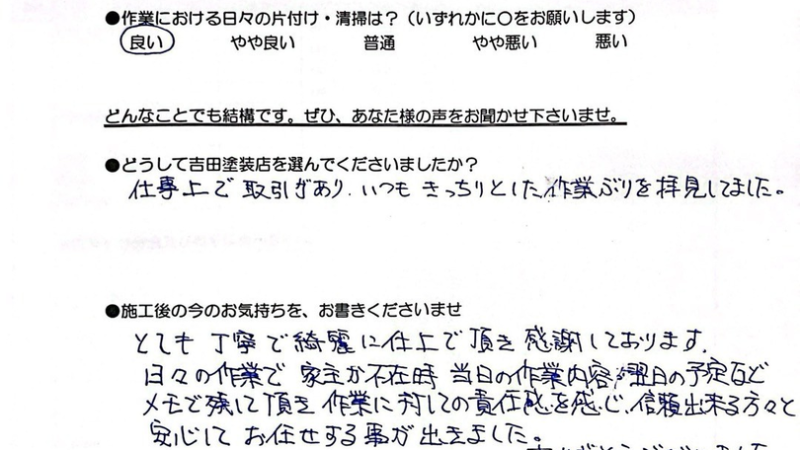 ●作業における日々の片付け・清掃は？（いずれかに〇をお願いします）
良い やや良い 普通 やや悪い 悪い
どんなことでも結構です。ぜひ、あなた様の声をお聞かせ下さいませ。
●どうして吉田塗装店を選んでくださいましたか？
仕事上で取引があり、いつもきっちりとした作業ぶりを拝見してました。
●施工後の今のお気持ちを、お書きくださいませ
とても丁寧で綺麗に仕上て頂き感謝しております。
日々の作業で家主が不在時当日の作業内容、翌日の予定など
メモで残して頂き作業に対しての責任感を感じ、信頼出来る方々と
安心してお任せする事が出きました。